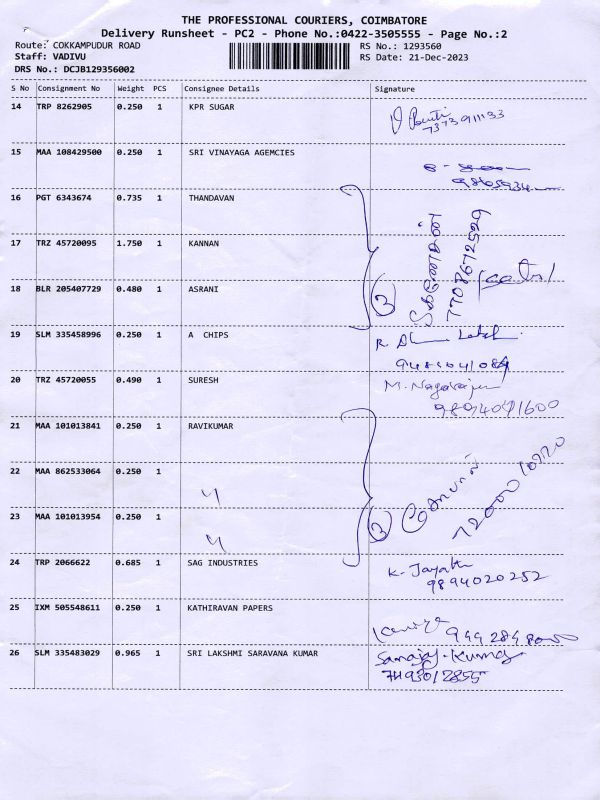 THE PROFESSIONAL COURIERS, COIMBATORE
Delivery Runsheet - PC2 - Phone No.:0422-3505555 - Page No.:2
Route: COKKAMPUDUR ROAD
RS No.: 1293560
Staff: VADIVU
RS Date: 21-Dec-2023
DRS No.: DCJB129356002
S No Consignment No Weight PCS Consignee Details Signature
14 TRP 8262905 0.250 1 KPR SUGAR
7373911133
15 MAA 108429500 0.250 1 SRI VINAYAGA AGEMCIES
16 PGT 6343674 0.735 1 THANDAVAN
17 TRZ 45720095 1.750 1 KANNAN
7708672529
18 BLR 205407729 0.480 1 ASRANI
3
19 SLM 335458996 0.250 1 A CHIPS
20 TRZ 45720055 0.490 1 SURESH
M. Nagarajan
21 MAA 101013841 0.250 1 RAVIKUMAR
22 MAA 862533064 0.250 1
23 MAA 101013954 0.250 1
3
24 TRP 2066622 0.685 1 SAG INDUSTRIES
9894020252
25 IXM 505548611 0.250 1 KATHIRAVAN PAPERS
26 SLM 335483029 0.965 1 SRI LAKSHMI SARAVANA KUMAR
Sanajay. Kumar
7493012855